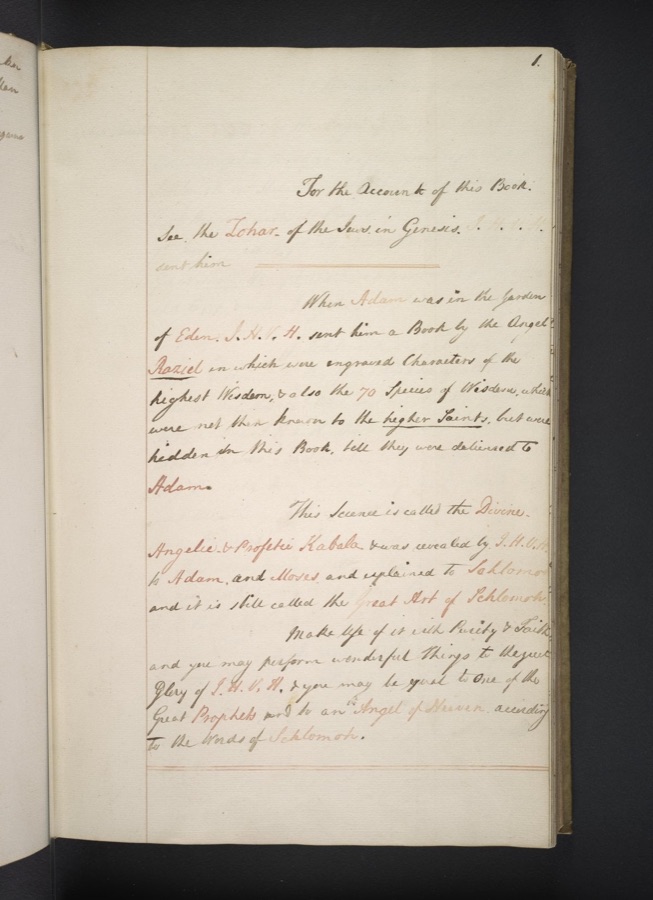 1.
For the Account of this Book.
See. the Zohar. of the Jews. in Genesis. J. H. V. H.
sent him
When Adam was in the Garden
of Eden. J. H. V. H. sent him a Book by the Angel
Raziel in which were engraved Characters of the
highest Wisdom, & also the 70 Species of Wisdom, which
were not then known to the higher Saints, but were
hidden in this Book, till they were delivered to
Adam.
This Science is called the Divine.
Angelic. & Profetic Kabala & was revealed by J. H. V. H.
to Adam, and Moses, and explained to Schlomoh
and it is still called the great Art of Schlomoh.
Make Use of it with Purity & Faith.
and you may perform wonderful Things to the great
Glory of J. H. V. H. & you may be equal to One of the
Great Prophets and to an Angel of Heaven. according
to the Words of Schlomoh.